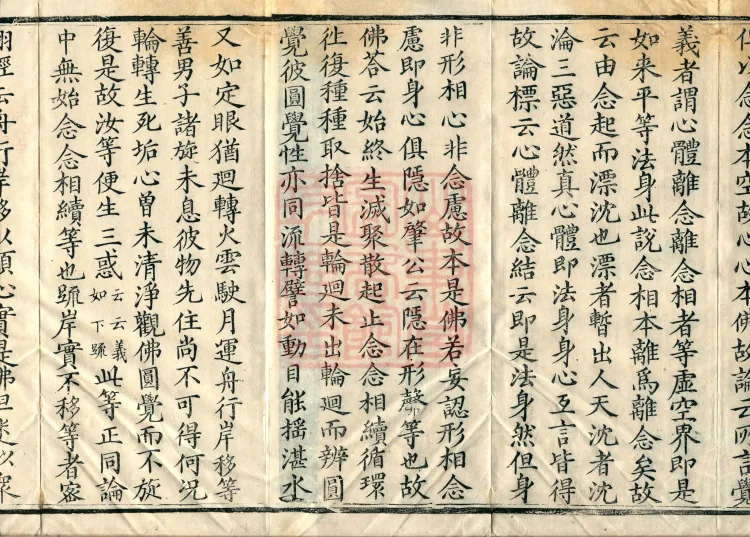 念念本空故心心本佛故論云所言覺
義者謂心體離念離念相者等虛空界即是
如来平等法身此說念相本離爲離念矣故
云由念起而漂沈也漂者暫出人天沈者沈
淪三惡道然真心體即法身身心互言皆得
故論標云心體離念結云即是法身然但身
非形相心非念慮故本是佛若妄認形相念
慮即身心俱隱如肇公云隱在形㲉等也故
佛荅云始終生滅聚散起止念念相續循環
往復種種取捨皆是輪迴未出輪迴而辨圓
覺彼圓覺性亦同流轉譬如動目能揺湛水
又如定眼猶迴轉火雲駛月運舟行岸移等
善男子諸旋未息彼物先住尚不可得何况
輪轉生死垢心曽未清淨觀佛圓覺而不旋
復是故汝等便生三惑云云義如下䟽此等正同論
中無始念念相續等也䟽岸實不移等者密
經云舟行岸移以類心實是佛但迷以衆